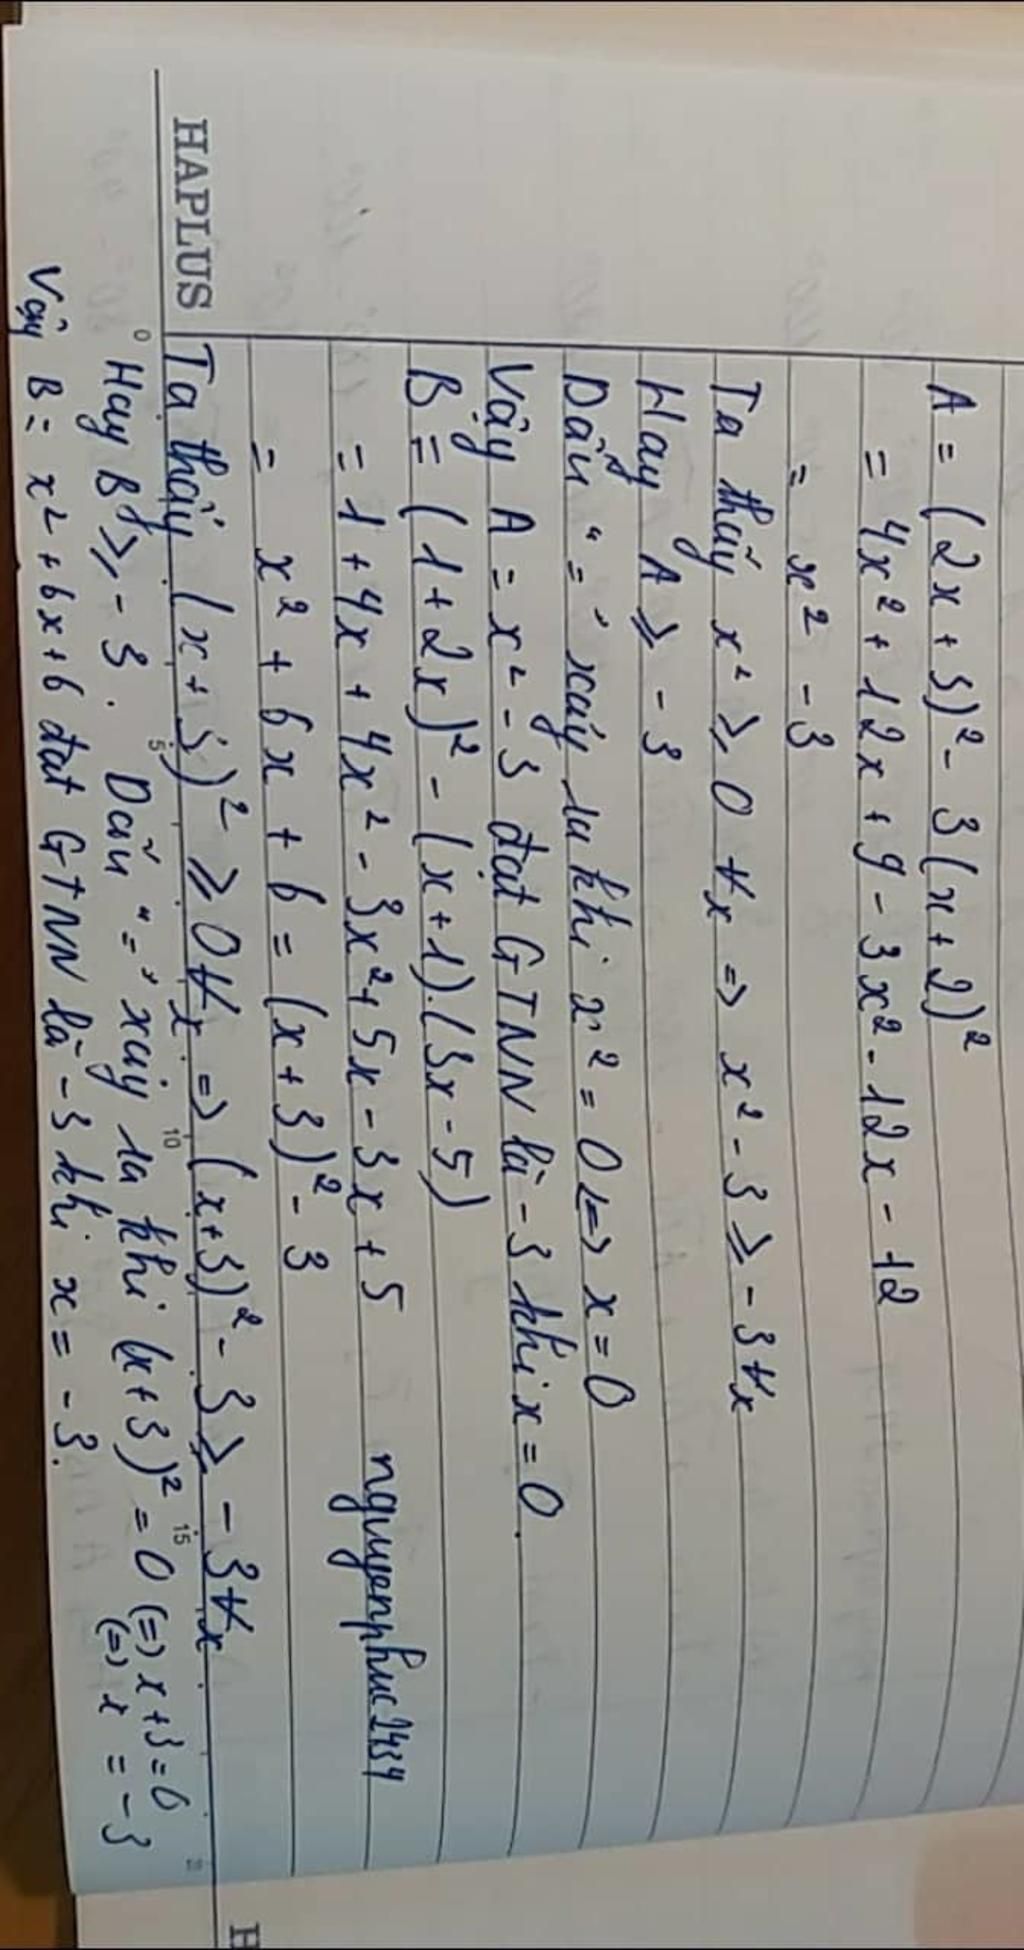 A = (2x + 3)² - 3(x + 2)²
= 4x² + 12x + 9 - 3x² - 12x - 12
= x² - 3
Ta thấy x² ≥ 0 ∀x => x² - 3 ≥ - 3 ∀x
Hay A ≥ - 3
Dấu "=" xảy ra khi x² = 0 <=> x = 0
Vậy A = x² - 3 đạt GTNN là - 3 khi x = 0.
B = (1 + 2x)² - (x + 1).(3x - 5)
= 1 + 4x + 4x² - 3x² + 5x - 3x + 5
nguyenphuc2434
= x² + 6x + 6 = (x + 3)² - 3
HAPLUS
Ta thấy (x + 3)² ≥ 0 ∀x => (x + 3)² - 3 ≥ - 3 ∀x
0 5 10 15 20
Hay B ≥ - 3. Dấu "=" xảy ra khi (x + 3)² = 0 (=) x + 3 = 0
(=) x = - 3
Vậy B = x² + 6x + 6 đạt GTNN là - 3 khi x = - 3.
H